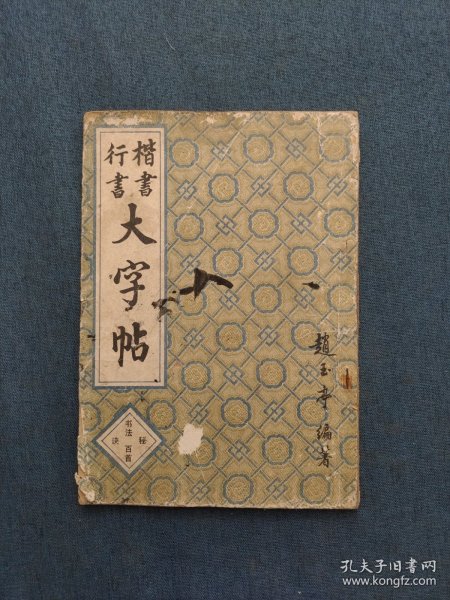 楷書
行書
大字帖
书法
百首
秘
诀
趙玉亭編著
孔夫子旧书网
www.kongfz.com